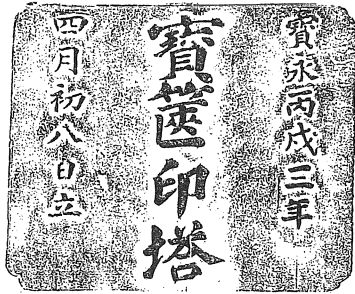 寳永丙戌三年
寳篋印塔
四月初八日立